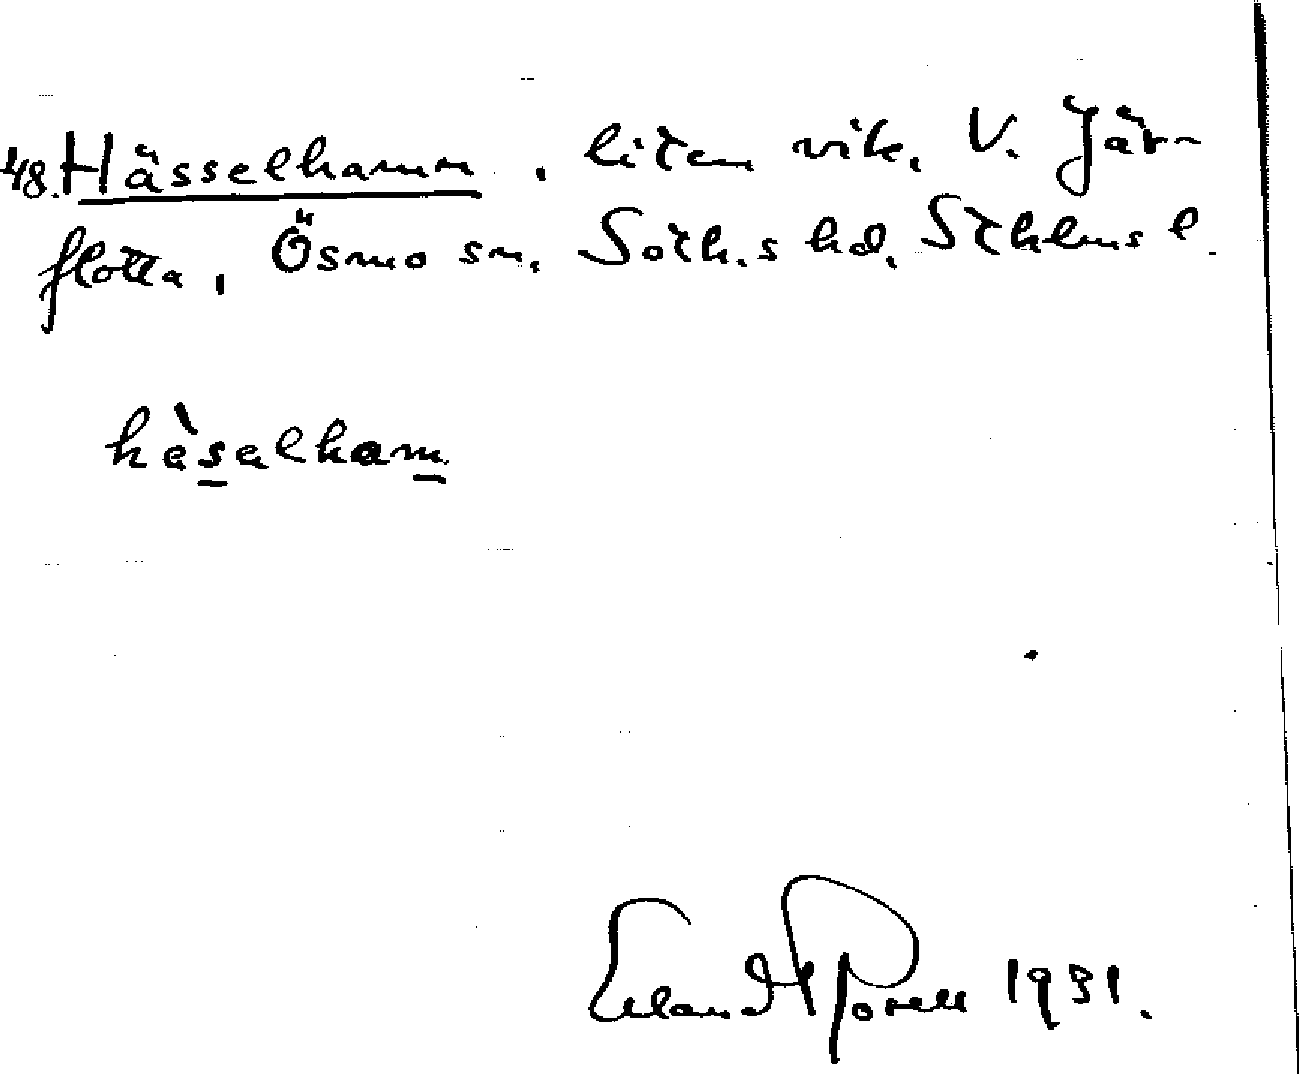 48. Hässelhamn, liten vik. V. Järflotta, Ösmo sn. Soth.s hd. Sthlms l.
hàsalham
Erland Porell 1931.